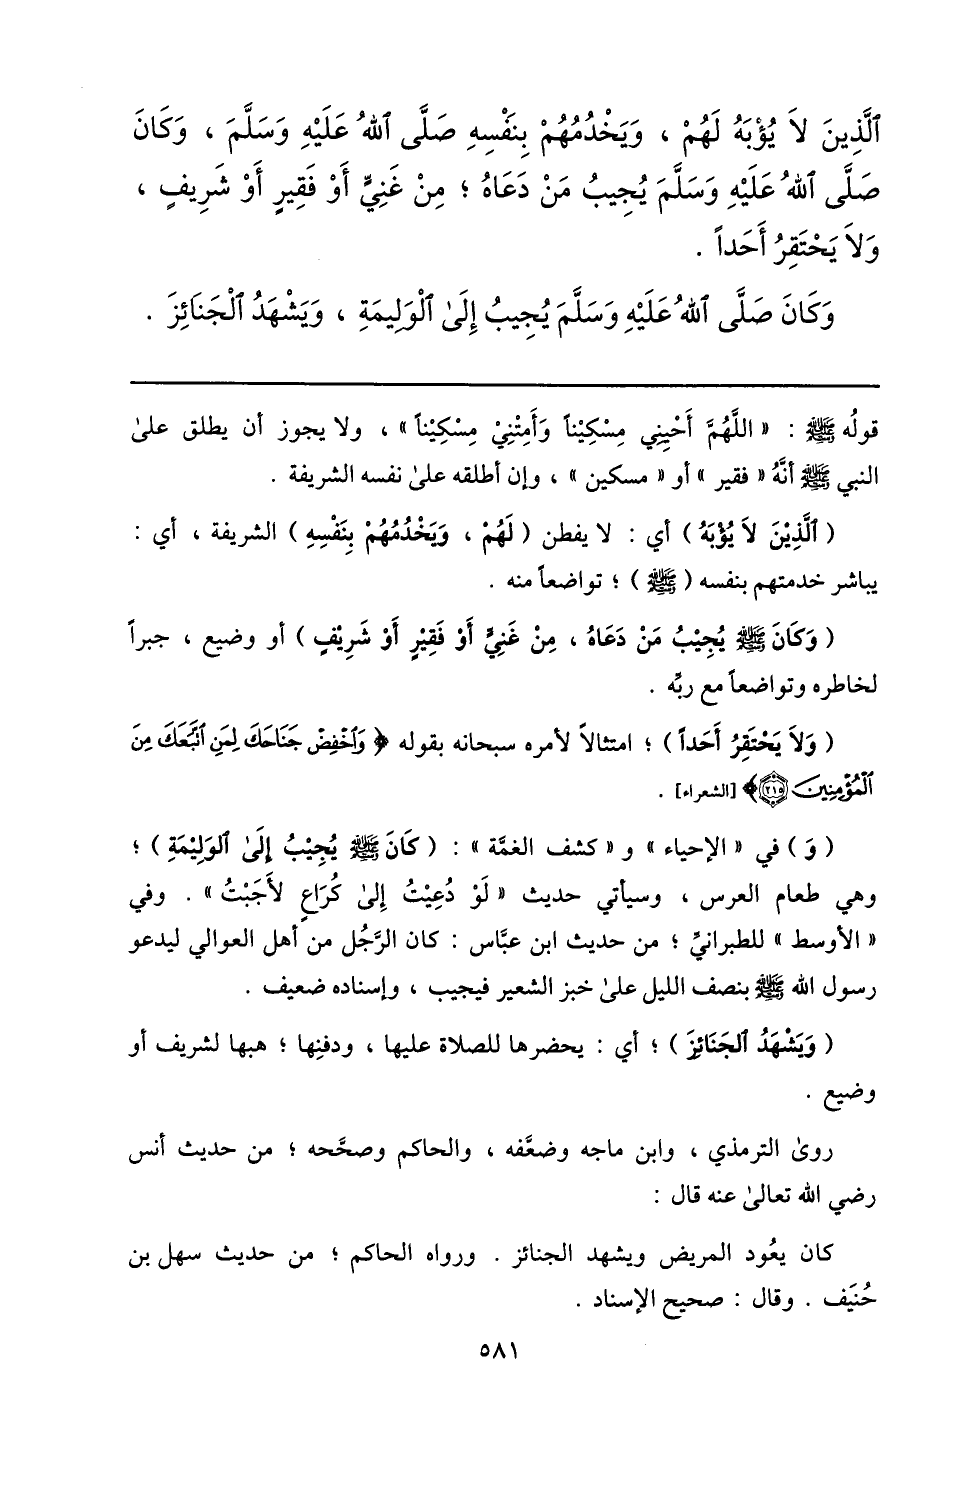 ٱلَّذِينَ لاَ يُؤْبَهُ لَهُمْ ، وَيَخْدُمُهُمْ بِنَفْسِهِ صَلَّى ٱللهُ عَلَيْهِ وَسَلَّمَ ، وَكَانَ
صَلَّى ٱللهُ عَلَيْهِ وَسَلَّمَ يُجِيبُ مَنْ دَعَاهُ ؛ مِنْ غَنِيٍّ أَوْ فَقِيرٍ أَوْ شَرِيفٍ ،
وَلاَ يَحْتَقِرُ أَحَداً .
وَكَانَ صَلَّى ٱللهُ عَلَيْهِ وَسَلَّمَ يُجِيبُ إِلَىٰ ٱلْوَلِيمَةِ ، وَيَشْهَدُ ٱلْجَنَائِزَ .
قولُه ﷺ : « اللَّهُمَّ أَحْيِنِي مِسْكِيْناً وَأَمِتْنِيْ مِسْكِيْناً » ، ولا يجوز أن يطلق علىٰ
النبي ﷺ أنَّهُ « فقير » أو « مسكين » ، وإن أطلقه علىٰ نفسه الشريفة .
( ٱلَّذِيْنَ لاَ يُؤْبَهُ ) أي : لا يفطن ( لَهُمْ ، وَيَخْدُمُهُمْ بِنَفْسِهِ ) الشريفة ، أي :
يباشر خدمتهم بنفسه ( ﷺ ) ؛ تواضعاً منه .
( وَكَانَ ﷺ يُجِيْبُ مَنْ دَعَاهُ ، مِنْ غَنِيٍّ أَوْ فَقِيْرٍ أَوْ شَرِيْفٍ ) أو وضيع ، جبراً
لخاطره وتواضعاً مع ربِّه .
( وَلاَ يَحْتَقِرُ أَحَداً ) ؛ امتثالاً لأمره سبحانه بقوله ﴿ وَٱخْفِضْ جَنَاحَكَ لِمَنِ ٱتَّبَعَكَ مِنَ
ٱلْمُؤْمِنِينَ ٢١٥ ﴾ [الشعراء] .
( وَ ) في « الإحياء » و « كشف الغمَّة » : ( كَانَ ﷺ يُجِيْبُ إِلَىٰ ٱلوَلِيْمَةِ ) ؛
وهي طعام العرس ، وسيأتي حديث « لَوْ دُعِيْتُ إِلىٰ كُرَاعٍ لأَجَبْتُ » . وفي
« الأوسط » للطبرانيِّ ؛ من حديث ابن عبَّاس : كان الرَّجُل من أهل العوالي ليدعو
رسول الله ﷺ بنصف الليل علىٰ خبز الشعير فيجيب ، وإسناده ضعيف .
( وَيَشْهَدُ ٱلجَنَائِزَ ) ؛ أي : يحضرها للصلاة عليها ، ودفنِها ؛ هبها لشريف أو
وضيع .
روىٰ الترمذي ، وابن ماجه وضعَّفه ، والحاكم وصحَّحه ؛ من حديث أنس
رضي الله تعالىٰ عنه قال :
كان يعُود المريض ويشهد الجنائز . ورواه الحاكم ؛ من حديث سهل بن
حُنَيف . وقال : صحيح الإسناد .
٥٨١